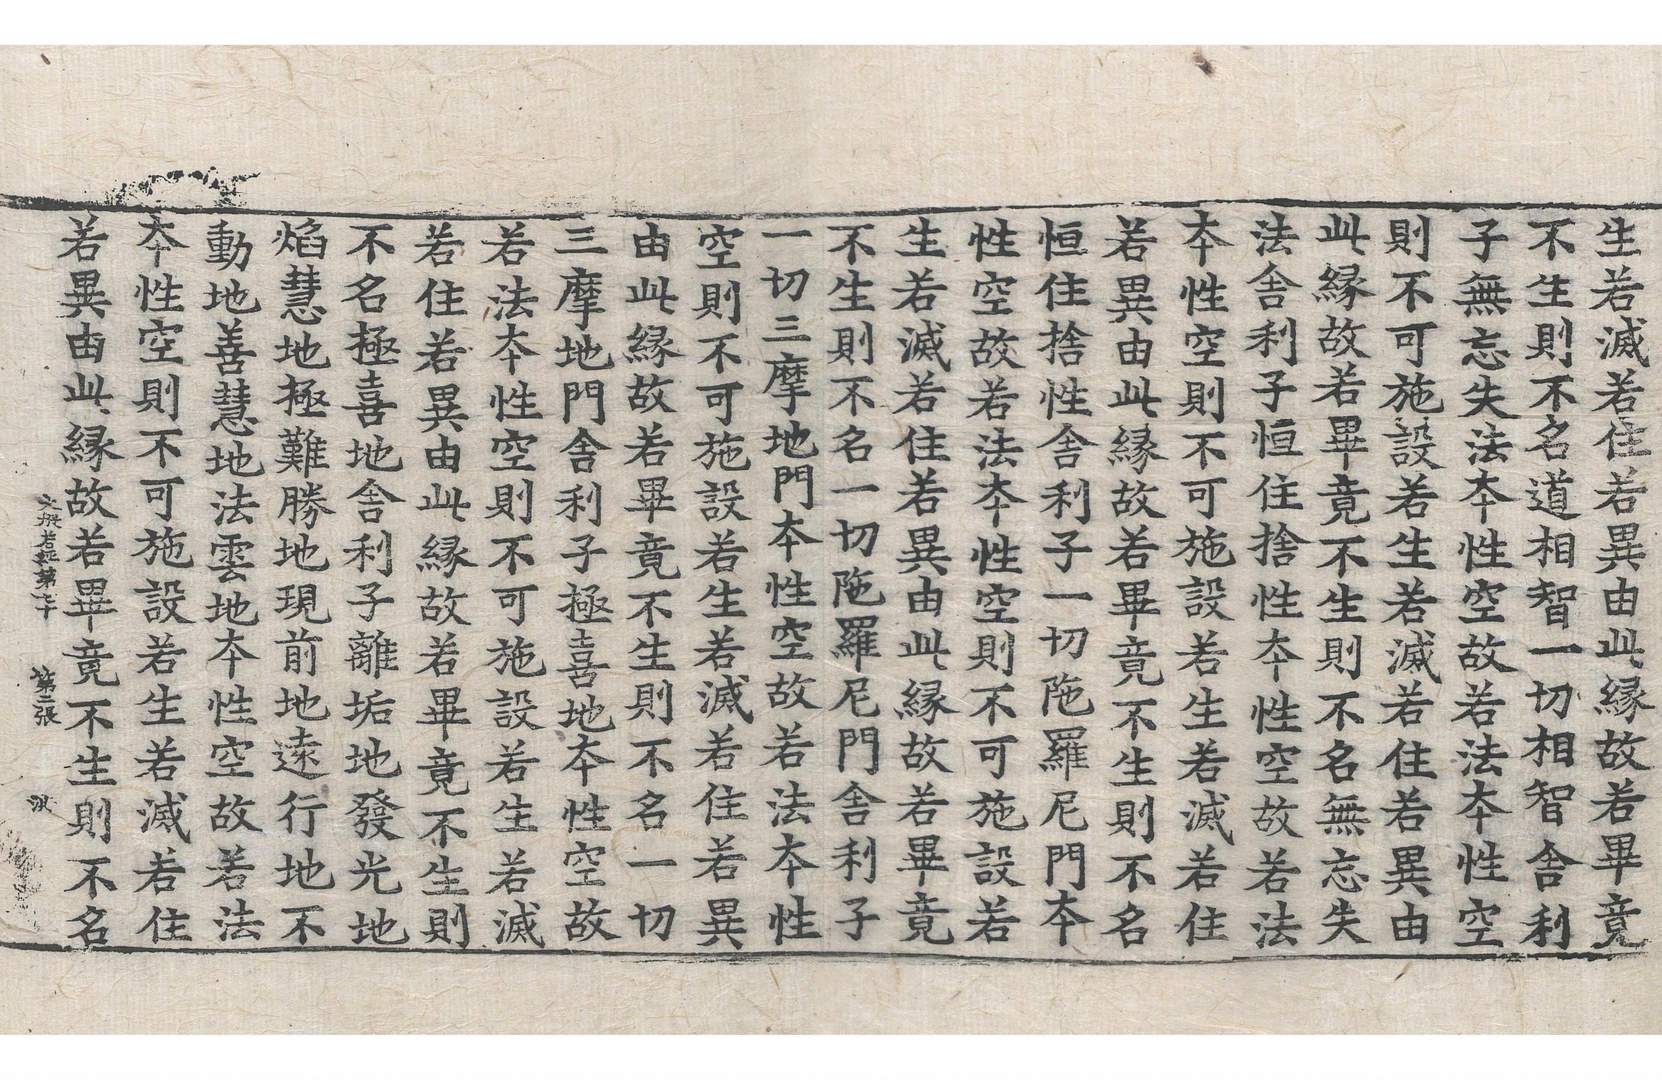 生若滅若住若異由此縁故若畢竟
不生則不名道相智一切相智舎利
子無忘失法本性空故若法本性空
則不可施設若生若滅若住若異由
此縁故若畢竟不生則不名無忘失
法舎利子恒住捨性本性空故若法
本性空則不可施設若生若滅若住
若異由此縁故若畢竟不生則不名
恒住捨性舎利子一切陁羅尼門本
性空故若法本性空則不可施設若
生若滅若住若異由此縁故若畢竟
不生則不名一切陁羅尼門舎利子
一切三摩地門本性空故若法本性
空則不可施設若生若滅若住若異
由此縁故若畢竟不生則不名一切
三摩地門舎利子極喜地本性空故
若法本性空則不可施設若生若滅
若住若異由此縁故若畢竟不生則
不名極喜地舎利子離垢地發光地
焰慧地極難勝地現前地遠行地不
動地善慧地法雲地本性空故若法
本性空則不可施設若生若滅若住
若異由此縁故若畢竟不生則不名
般若經第七十 第三張